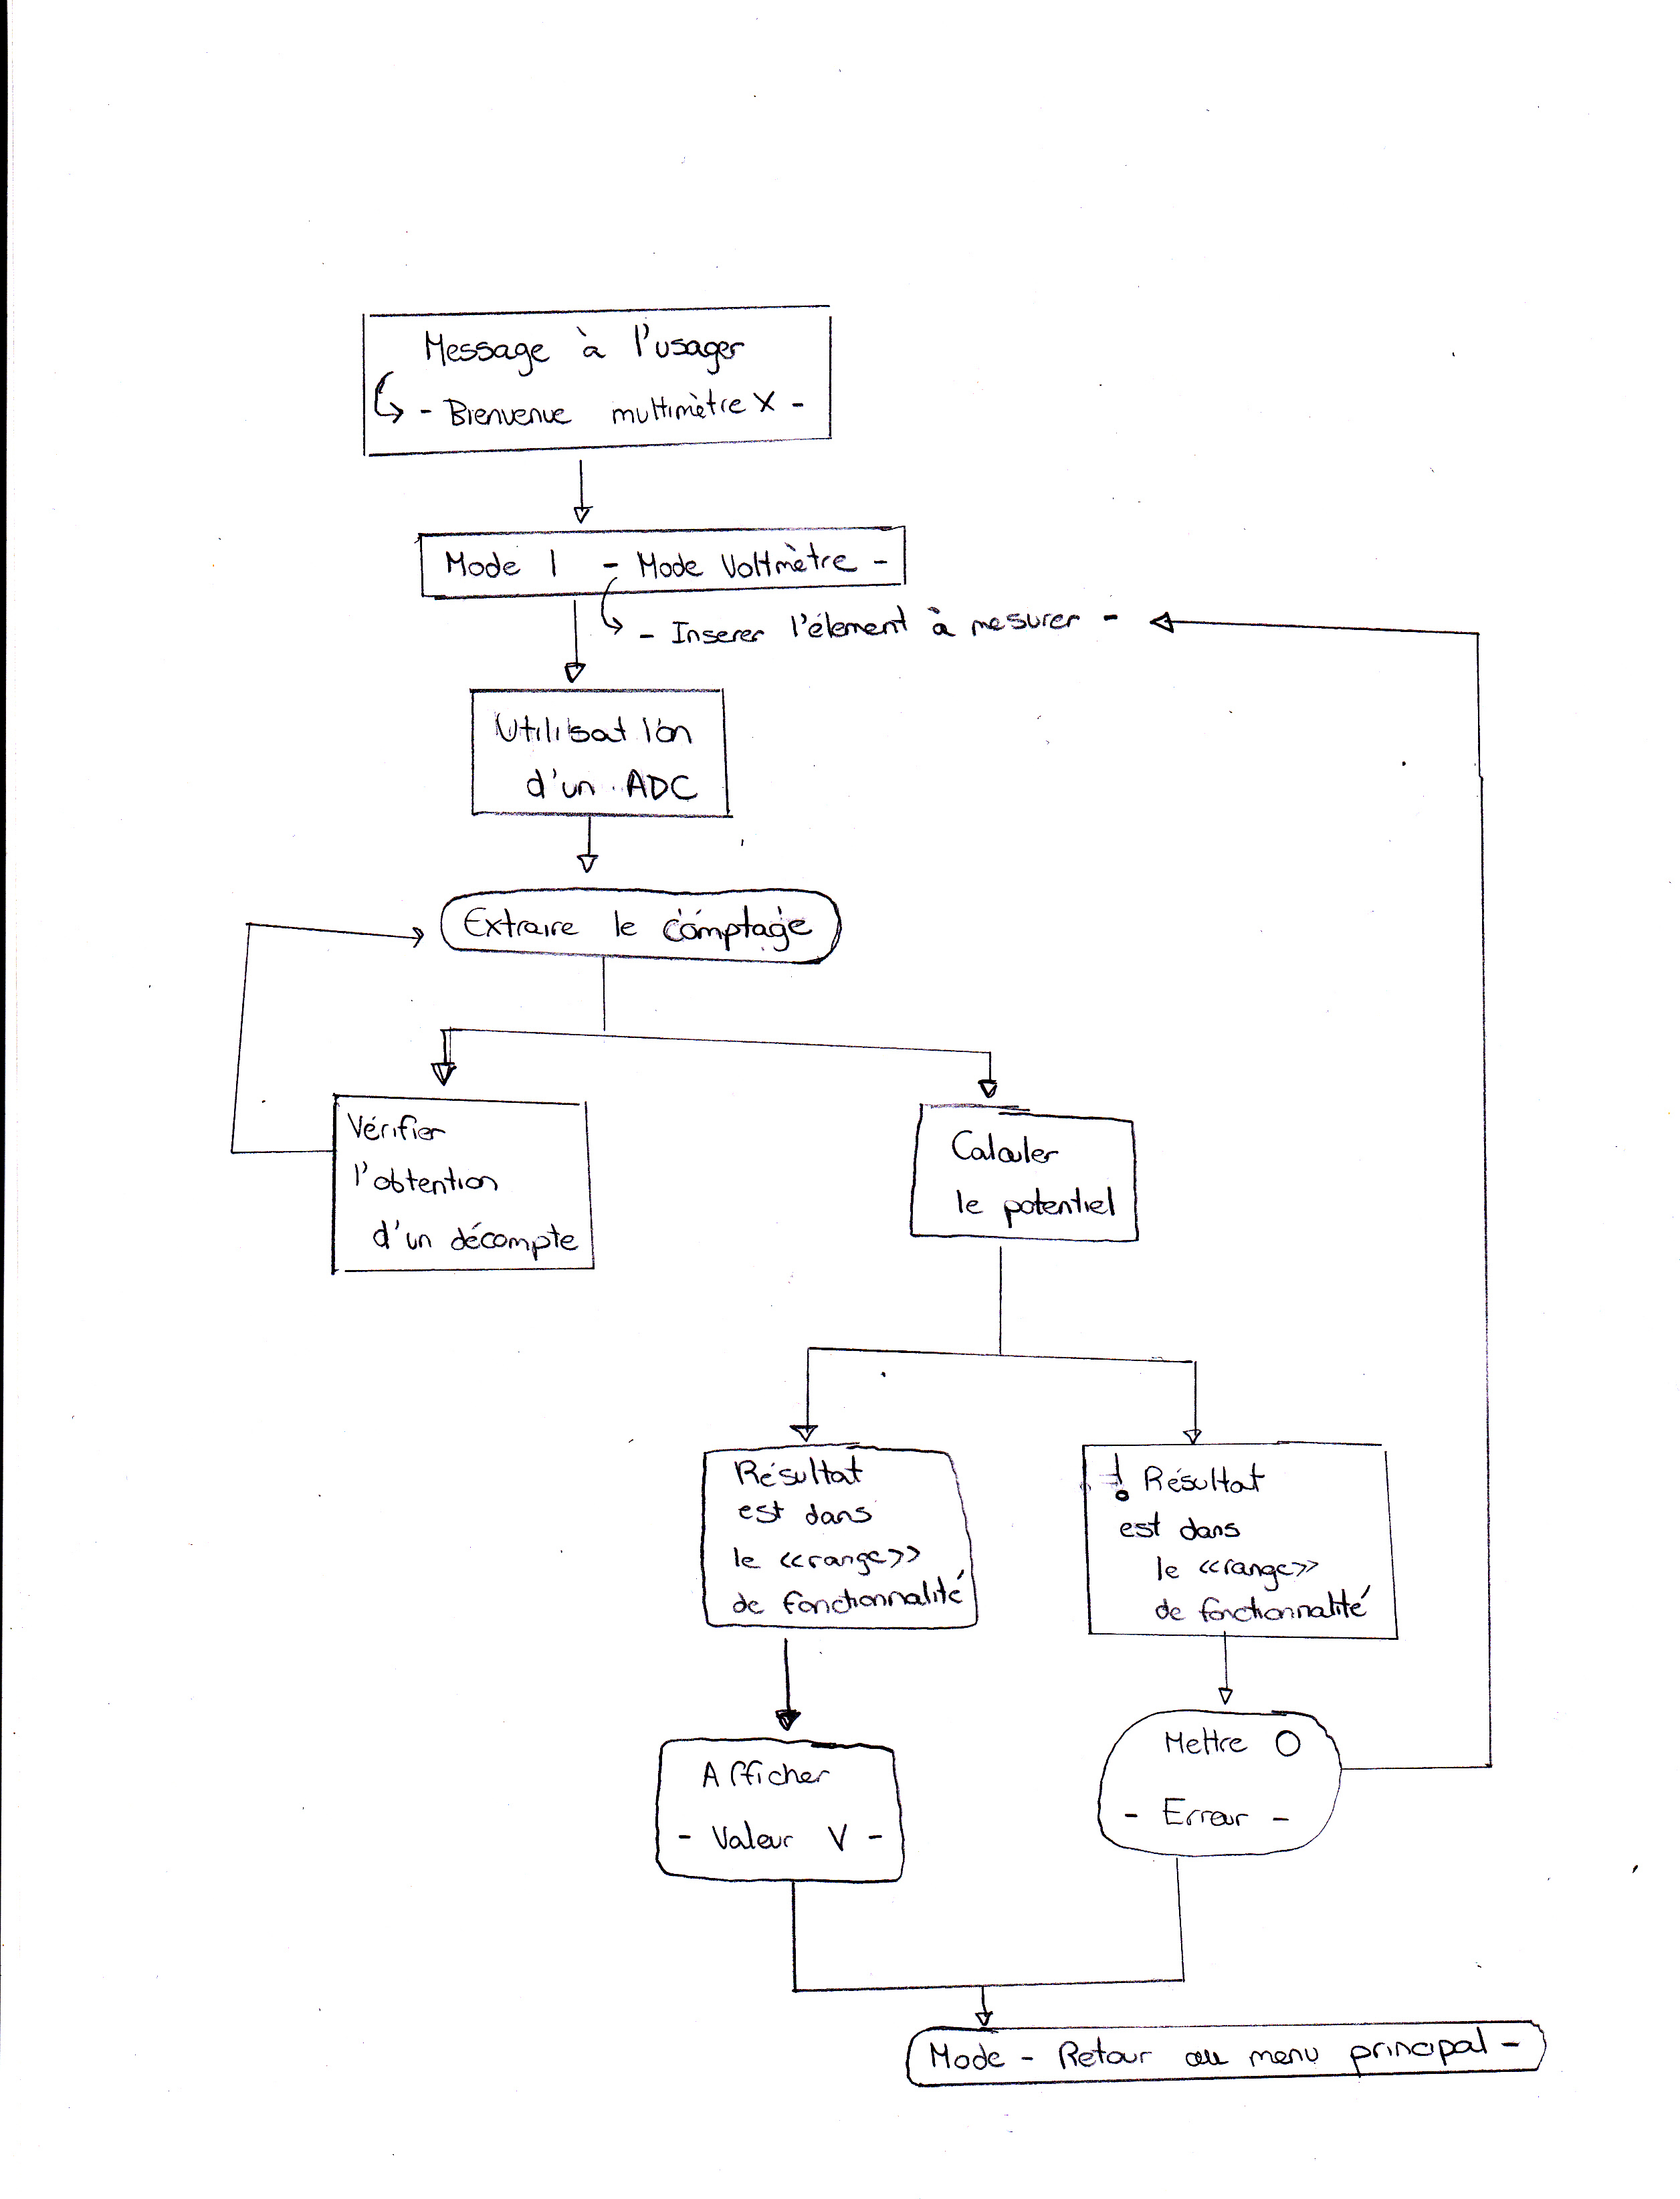 Message à l'usager
- Bienvenue multimètre X -
Mode 1 - Mode Voltmètre -
- Inserer l'élement à mesurer -
Utilisation
d'un ADC
Extraire le comptage
Vérifier
l'obtention
d'un décompte
Calculer
le potentiel
Résultat
est dans
le <<range>>
de fonctionnalité
! Résultat
est dans
le <<range>>
de fonctionnalité
Afficher
- Valeur V -
Mettre O
- Erreur -
Mode - Retour au menu principal -